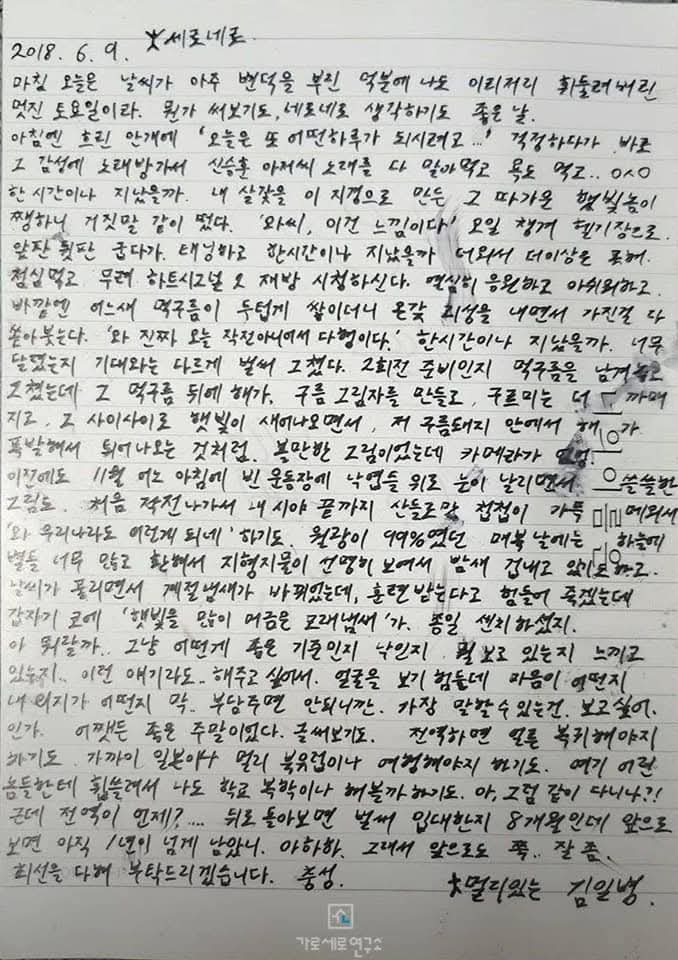 2018. 6. 9. 세로네로
마침 오늘은 날씨가 아주 변덕을 부린 덕분에 나도 이리저리 휘둘려버린
멋진 토요일이라. 뭔가 써보기도, 네로네로 생각하기도 좋은 날.
아침엔 흐린 안개에 '오늘은 또 어떤하루가 되시려고...' 걱정하다가 바로
그 감성에 노래방가서 신승훈 아저씨 노래를 다 말아먹고 욕도 먹고.. ㅇㅅㅇ
한시간이나 지났을까. 내 살갗을 이 지경으로 만든 그 따가운 햇빛놈이
쨍하니 거짓말 같이 떴다. '와씨, 이건 느낌이다' 오일 챙겨 헬기장으로.
앞판 뒷판 굽다가. 태닝하고 한시간이나 지났을까 더워서 더이상은 포기.
점심먹고 무려 하트시그널 2 재방 시청하신다. 열심히 응원하고 아쉬워하고.
바깥엔 어느새 먹구름이 두텁게 쌓이더니 온갖 괴성을 내면서 가진걸 다
쏟아붓는다. '와 진짜 오늘 작전아니어서 다행이다.' 한시간이나 지났을까. 너무
달렸는지 기대와는 다르게 벌써 그쳤다. 2회전 준비인지 먹구름을 남겨놓고
그쳤는데 그 먹구름 뒤에 해가. 구름 그림자를 만들고, 구르미는 더 까매
지고, 그 사이사이로 햇빛이 새어나오면서, 저 구름돼지 안에서 해가
폭발해서 튀어나오는 것처럼. 볼만한 그림이었는데 카메라가
이전에도 11월 어느 아침에 빈 운동장에 낙엽들 위로 눈이 날리면서 쓸쓸한
그림도. 처음 작전나가서 내 시야 끝까지 산들로만 첩첩이 가득 메워서
'와 우리나라도 이렇게 되네' 하기도. 월광이 99%였던 매복날에는 하늘에
별들 너무 많고 환해서 지형지물이 선명히 보여서 밤새 겁내고 있기도하고.
날씨가 풀리면서 계절냄새가 바뀌었는데, 훈련받는다고 힘들어 죽겠는데
갑자기 코에 '햇빛을 많이 머금은 모래냄새'가. 종일 센치하셨지.
아 뭐랄까.. 그냥 어떤게 좋은 기준인지 낙인지 뭘 보고 있는지 느끼고
있는지.. 이런 얘기라도.. 해주고 싶어서. 얼굴을 보기 힘들데 마음이 어떤지
내 의지가 어떤지 막.. 부담주면 안되니깐. 가장 말할수 있는건. 보고싶어.
인가. 어쨋든 좋은 주말이었다. 글써보기도. 전역하면 얼른 복귀해야지
하기도. 가까이 일본이나 멀리 북유럽이나 여행해야지 하기도. 여기 어린
놈들한테 휩쓸려서 나도 학교 복학이나 해볼까하기도. 아, 그럼 같이 다니나?!
근데 전역이 언제?.... 뒤로 돌아보면 벌써 입대한지 8개월인데 앞으로
보면 아직 1년이 넘게 남았니. 아하하. 그래서 앞으로도 쭉.. 잘 좀.
최선을 다해 부탁드리겠습니다. 충성.
멀리있는 김일병.
가로세로연구소